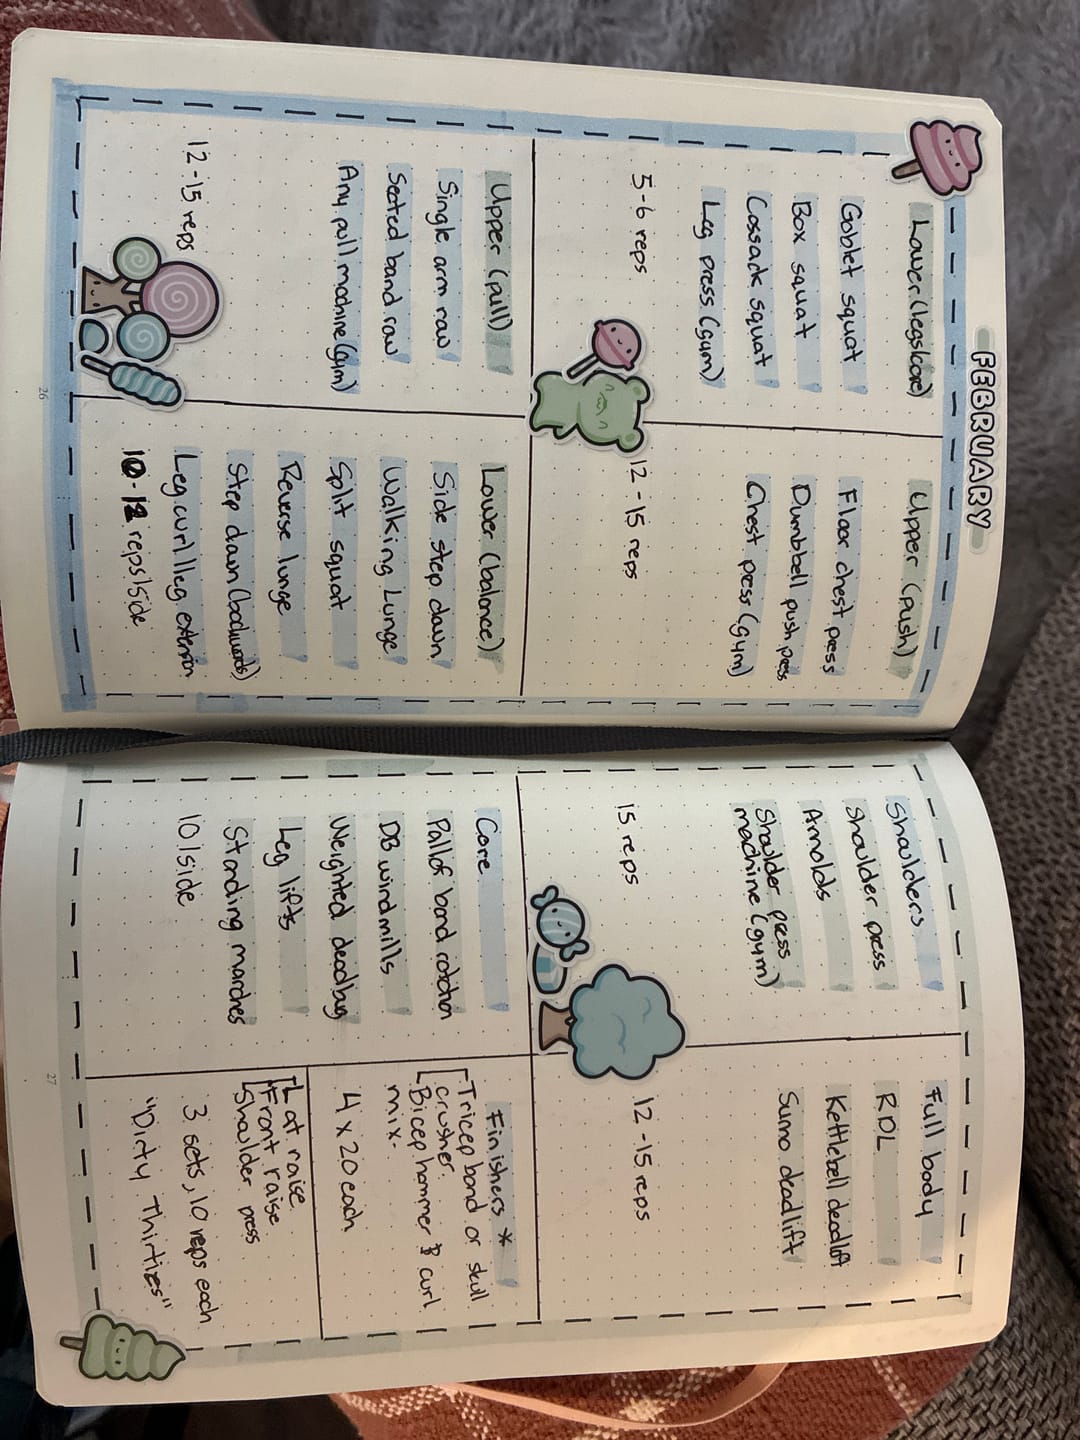 FEBRUARY
Lower (legs/core)
Goblet squat
Box squat
Cossack squat
Leg press (gym)
5-6 reps
Upper (push)
Floor chest press
Dumbbell push press
Chest press (gym)
12-15 reps
Upper (pull)
Single arm row
Seated band row
Any pull machine (gym)
12-15 reps
Lower (balance)
Side step down
Walking Lunge
Split squat
Reverse lunge
Step down (backwards)
Leg curl/leg extension
10-12 reps/side
26
Shoulders
Shoulder press
Arnolds
Shoulder press
machine (gym)
15 reps
Full body
RDL
Kettlebell deadlift
Sumo deadlift
12-15 reps
Core
Pallof band rotation
DB windmills
Weighted deadbug
Leg lifts
Standing marches
10/side
Finishers *
Tricep band or skull
crusher.
Bicep hammer & curl
mix.
4 x 20 each
Lat raise
Front raise
Shoulder press
3 sets, 10 reps each
"Dirty Thirties"
27